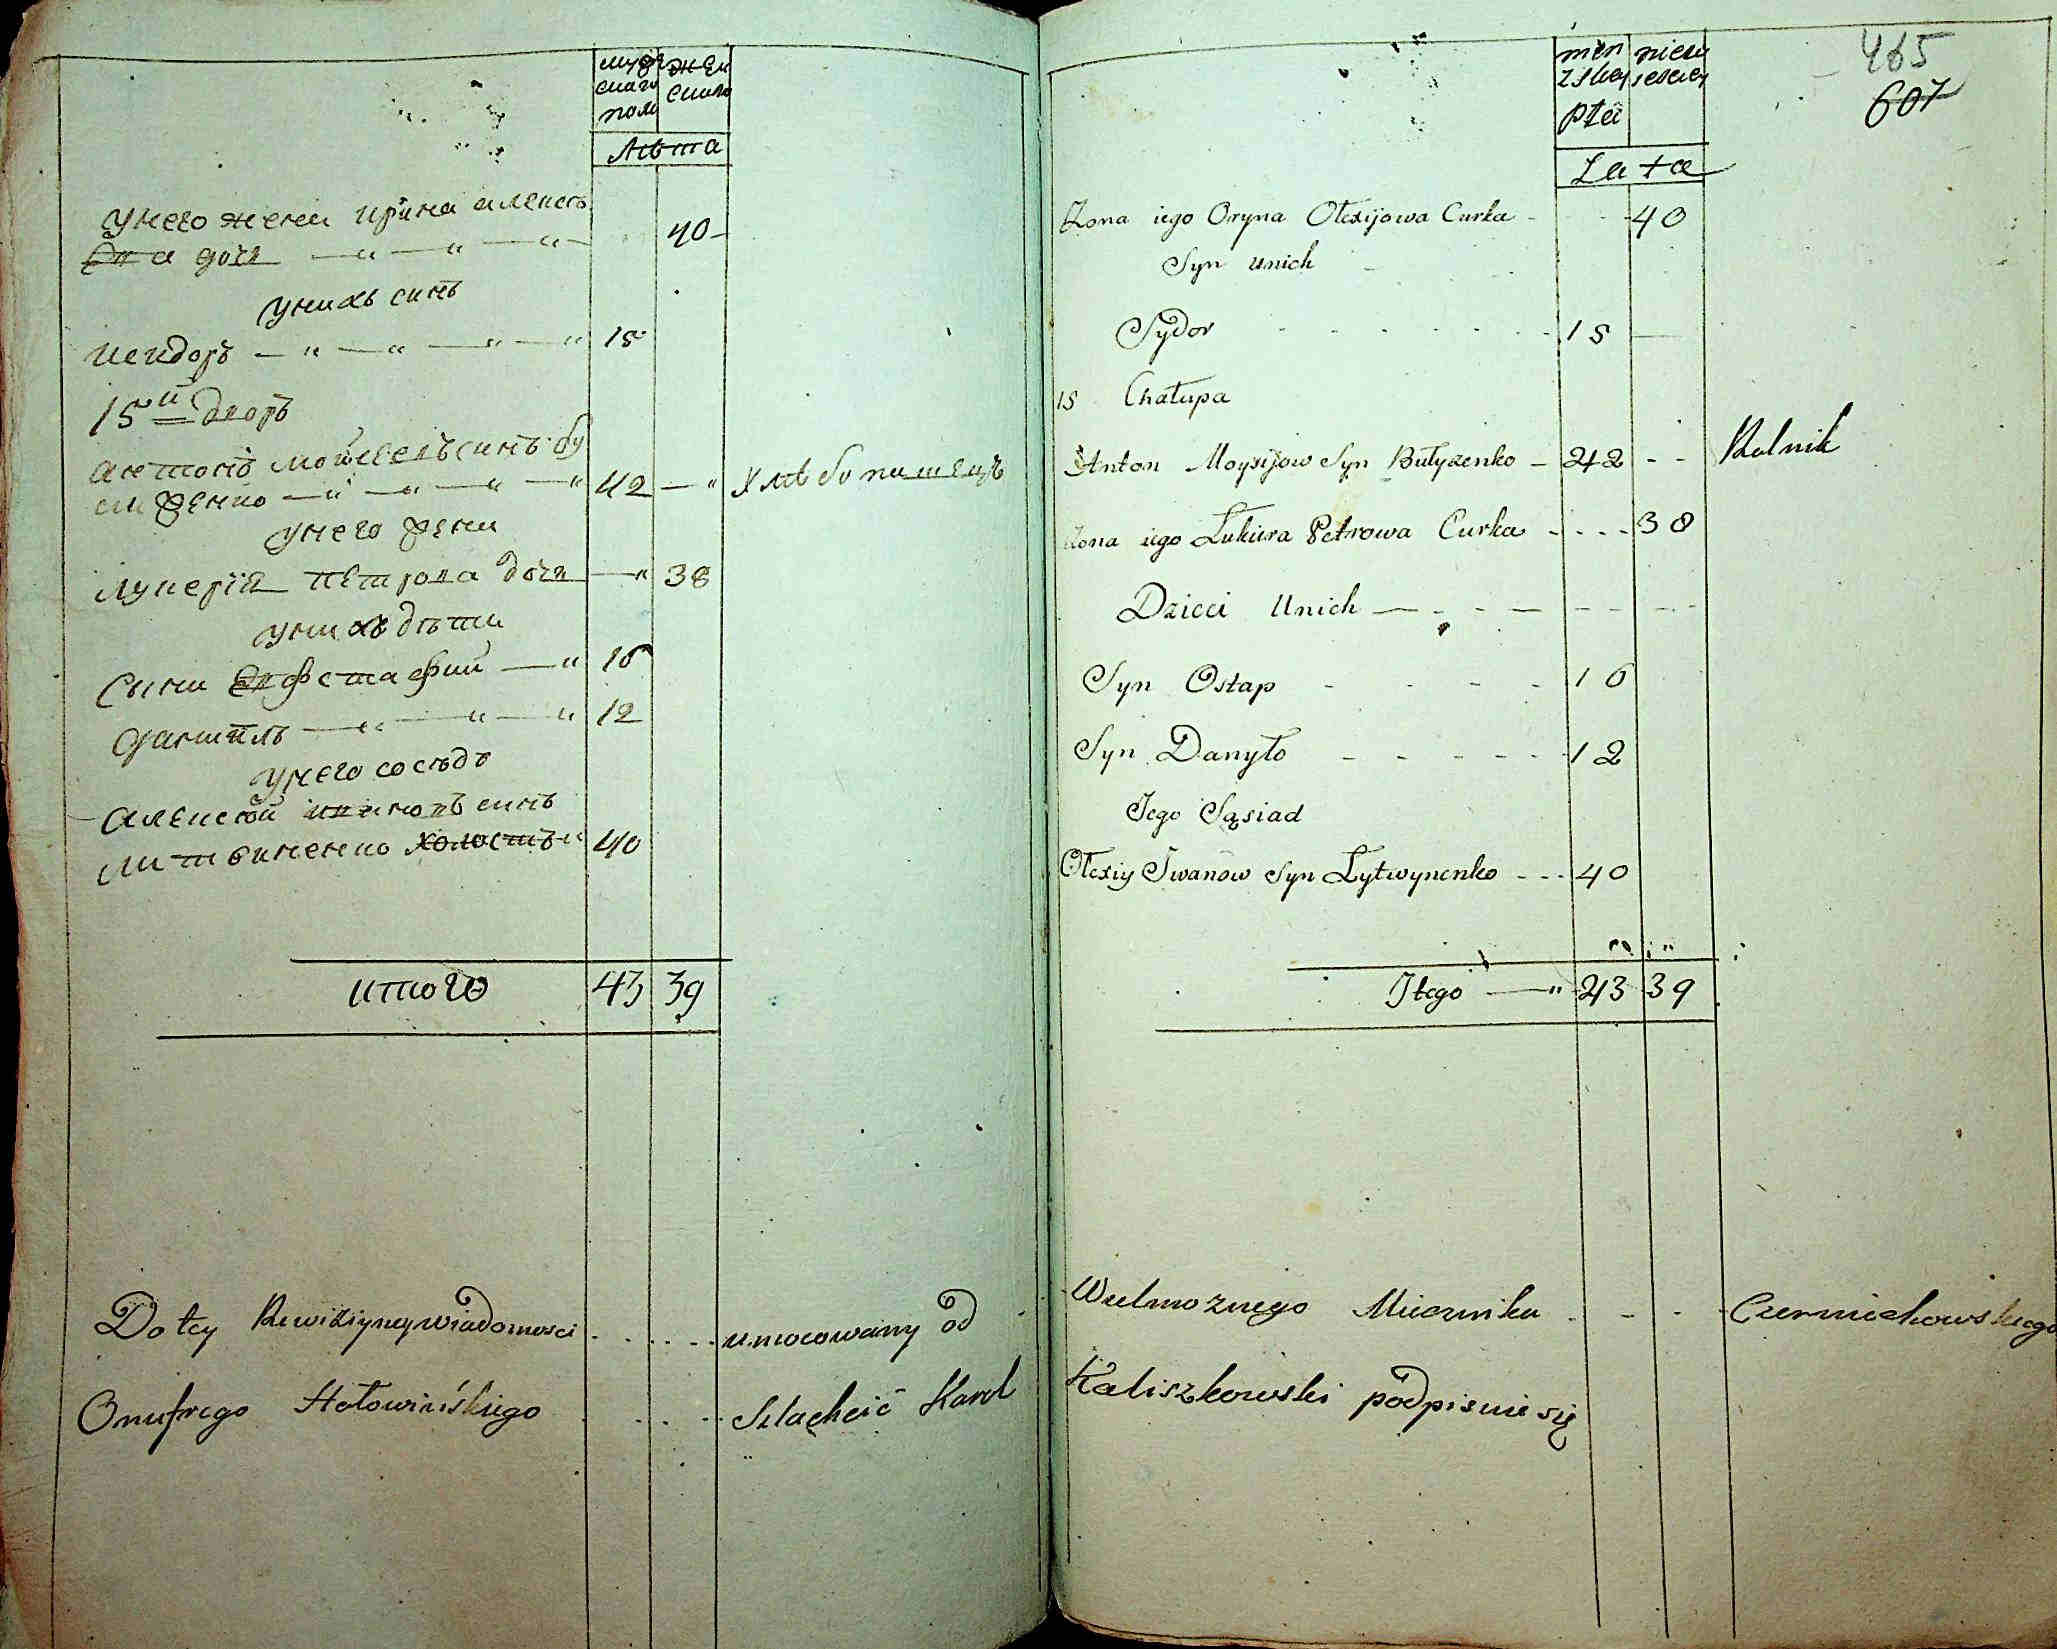 мужескаго полу
женскаго
Лѣта
У него жена Ирина Алексѣ
ева дочь — " — " — " 40
У нихъ синъ
Исидоръ — " — " — " — " 15
15й дворъ
Антонъ Мойсеевъ синъ Бу
лиженко — " — " — " — " 42 — " хлѣбопашецъ
У него жена
Лукерія Петрова дочь — " 38
У нихъ дѣти
Сыни Евфстафий — " 16
Даниилъ — " — " — " 12
У него сосѣдъ
Алексѣй Ивановъ синъ
Литвиненко холостъ " 40
итого 43 39
Do tey Rewiziyney wiadomosci - - - - - umocowany od
Onufrego Hołowińskiego - - - - Szlachcic Karol
465
607
męzskey płći
niewieskiey
Lata
Zona iego Oryna Ołexijowa Curka - - - 40
Syn unich
Sydor - - - - - - - 15 —
15 Chałupa
Anton Moysijow Syn Bułyzenko - 42 - - Rolnik
Zona iego Łukiera Petrowa Curka - - - - 38
Dzieci Unich — - - — - - - -
Syn Ostap - - - - 16
Syn Danyło - - - - - 12
Jego Sąsiad
Ołexiy Jwanow Syn Łytwynenko - - - 40
Itego — " 43 39
Wielmoznego Miecznika - - - Czerniechowskiego
Kaliszkowski podpisuie się